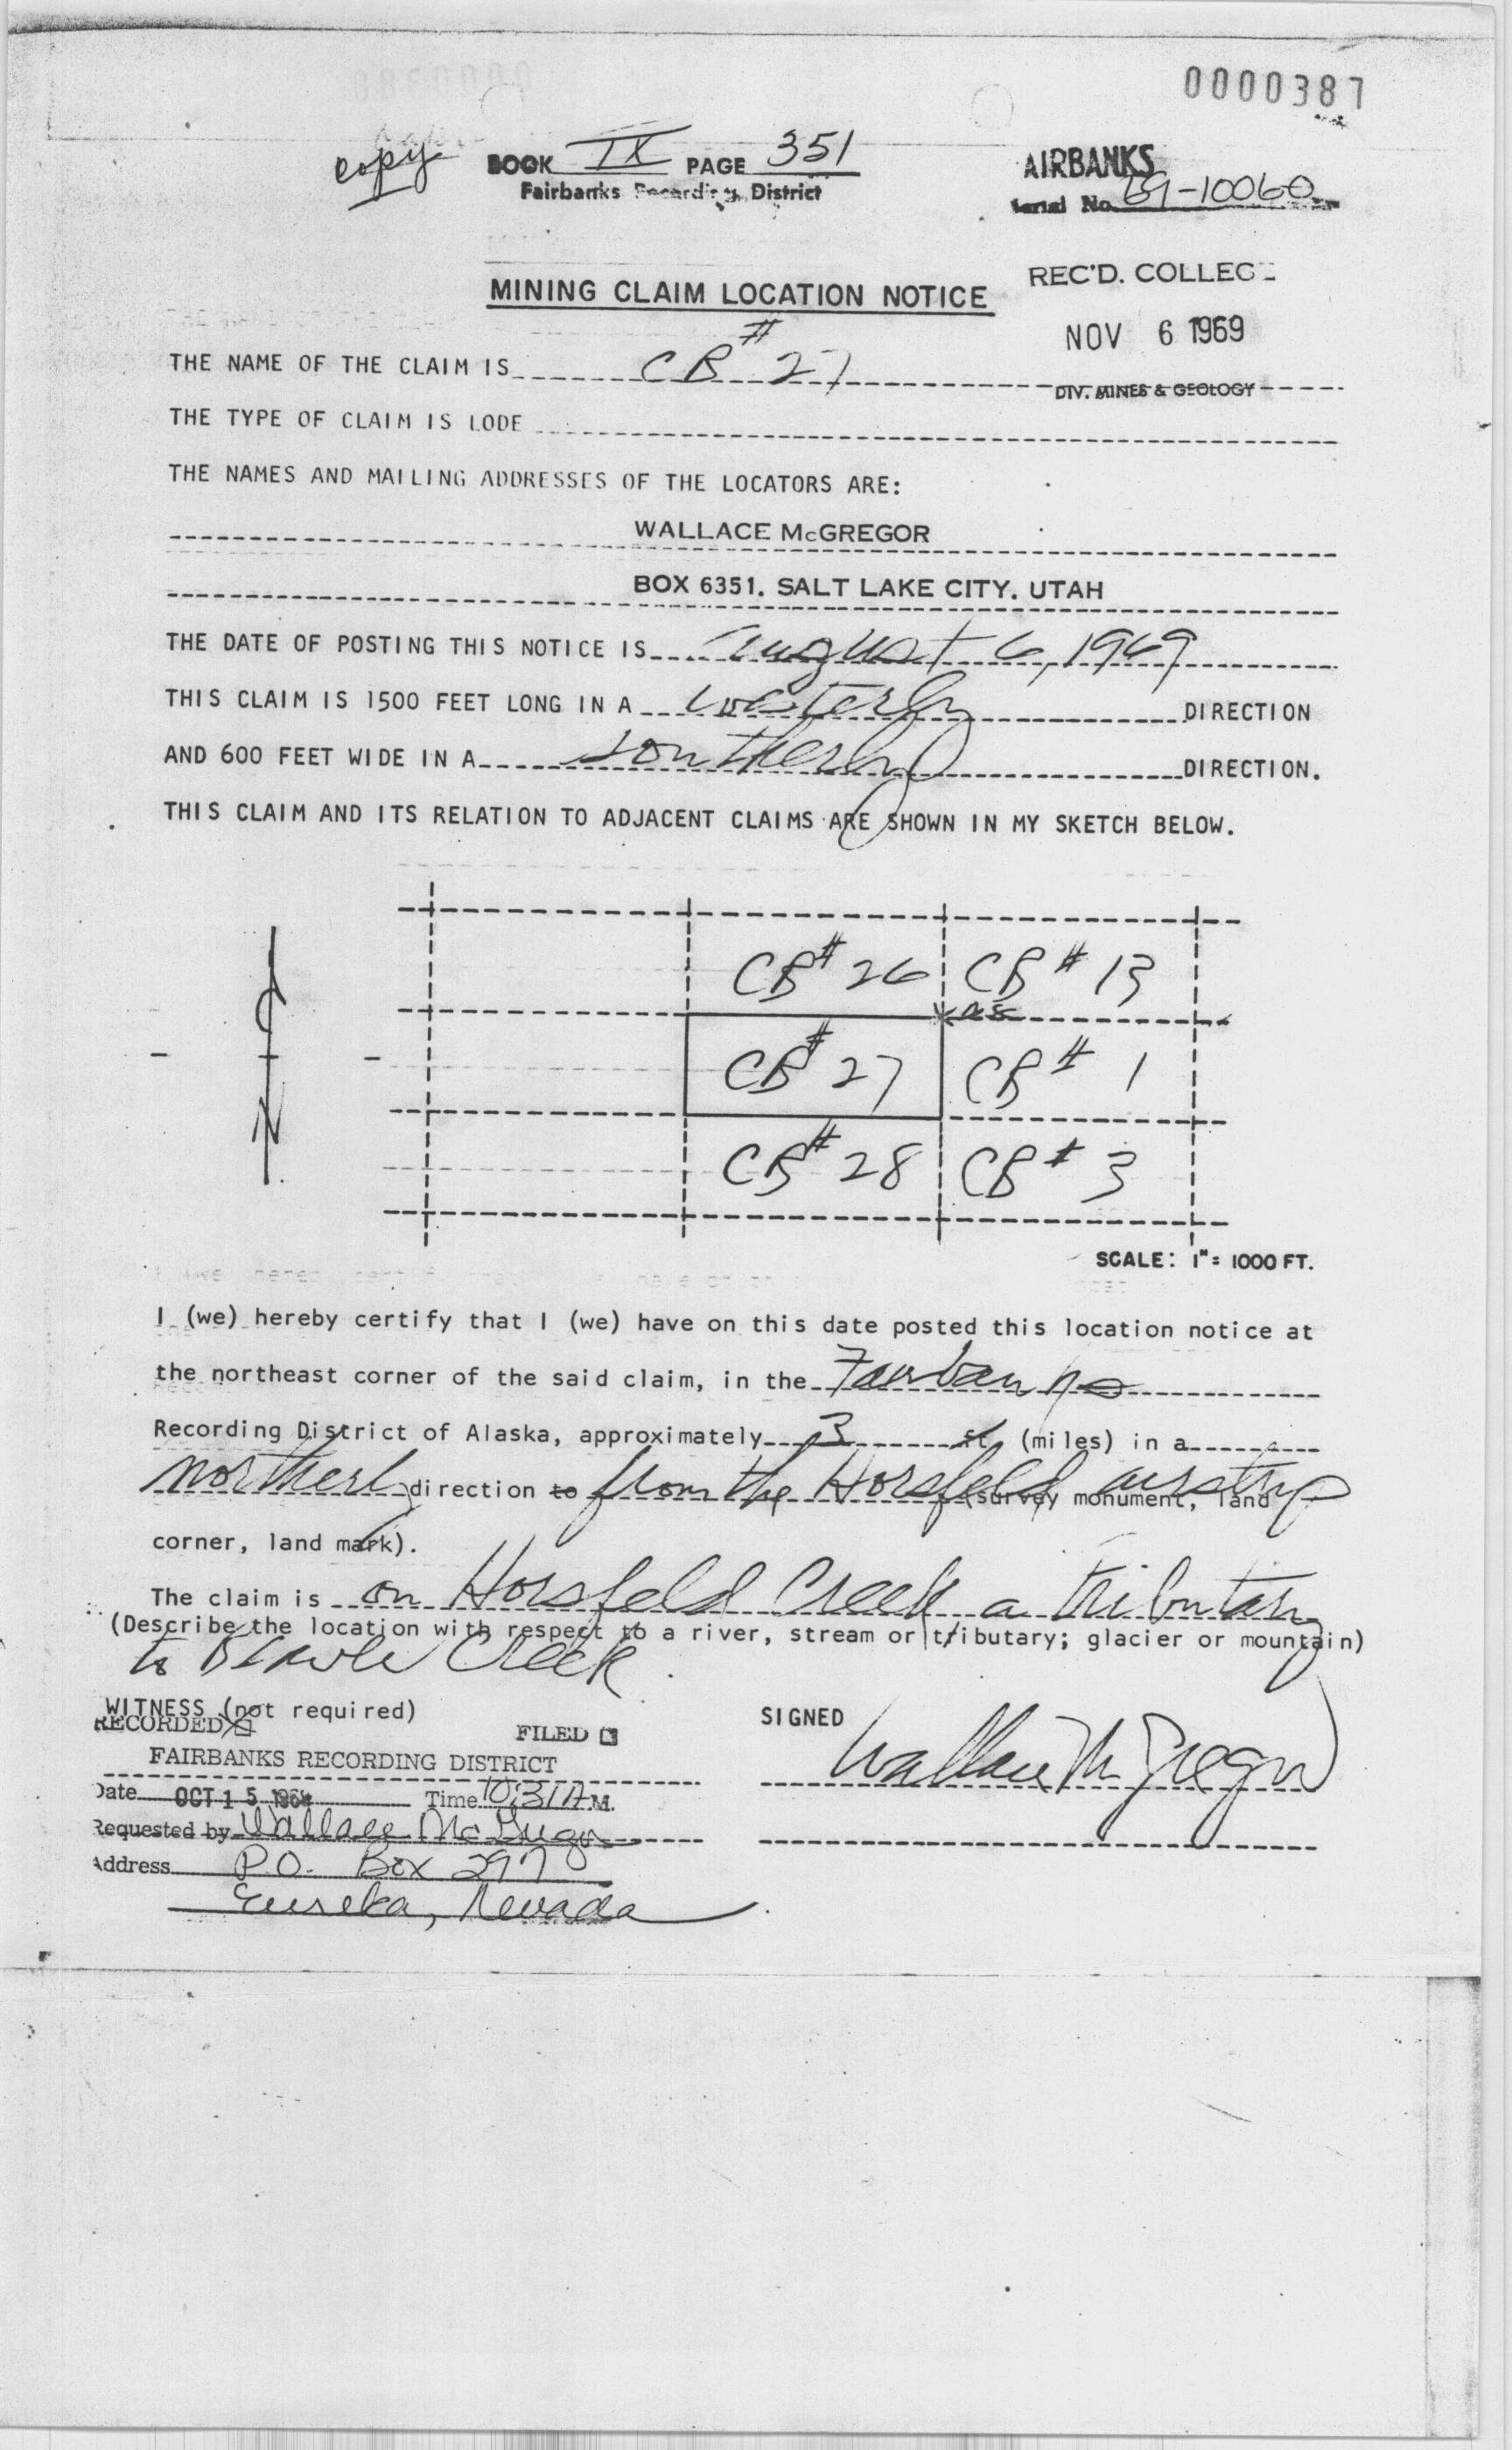 0000387
copy
BOOK IX PAGE 351
Fairbanks Recording District
AIRBANKS
Serial No. 69-10060
REC'D. COLLEGE
NOV 6 1969
DIV. MINES & GEOLOGY
MINING CLAIM LOCATION NOTICE
THE NAME OF THE CLAIM IS CB # 27
THE TYPE OF CLAIM IS LODE
THE NAMES AND MAILING ADDRESSES OF THE LOCATORS ARE:
WALLACE McGREGOR
BOX 6351. SALT LAKE CITY. UTAH
THE DATE OF POSTING THIS NOTICE IS August 6, 1969
THIS CLAIM IS 1500 FEET LONG IN A westerly DIRECTION
AND 600 FEET WIDE IN A southerly DIRECTION.
THIS CLAIM AND ITS RELATION TO ADJACENT CLAIMS ARE SHOWN IN MY SKETCH BELOW.
CB # 26 CB # 13
CB # 27 CB # 1
CB # 28 CB # 3
N
SCALE: 1" = 1000 FT.
I (we) hereby certify that I (we) have on this date posted this location notice at
the northeast corner of the said claim, in the Fairbanks
Recording District of Alaska, approximately 3 ft (miles) in a
northerly direction to from the Horsfeld airstrip (survey monument, land
corner, land mark).
The claim is on Horsfeld Creek a tributary
(Describe the location with respect to a river, stream or tributary; glacier or mountain)
to Creek
WITNESS (not required)
SIGNED Wallace McGregor
RECORDED FILED
FAIRBANKS RECORDING DISTRICT
Date OCT 15 Time 10:31 A M.
Requested by Wallace McGregor
Address P.O. Box 297
Eureka, Nevada